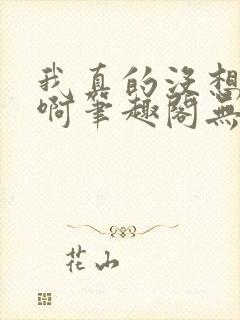 我真的没想
啊筆趣閣無
花山